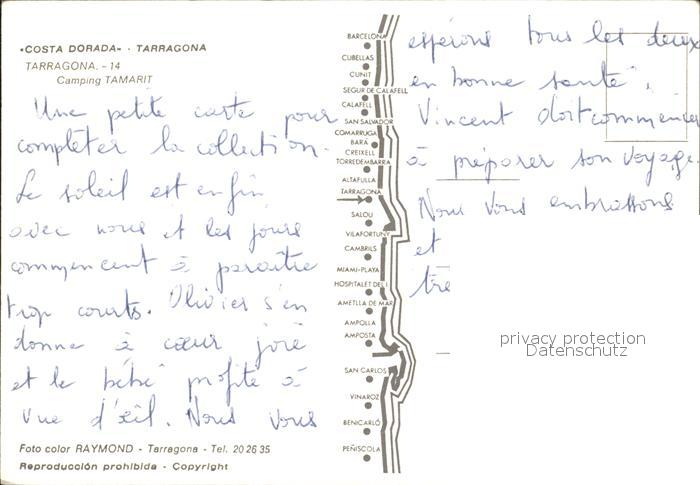 «COSTA DORADA» - TARRAGONA
TARRAGONA. - 14
Camping TAMARIT
Une petite carte pour
compléter la collection.
Le soleil est enfin
avec nous et les jours
commencent à paraitre
trop courts. Olivier s'en
donne à cœur joie
et le bébé profite à
vue d'œil. Nous vous
Foto color RAYMOND - Tarragona - Tel. 20 26 35
Reproducción prohibida - Copyright
BARCELONA
CUBELLAS
CUNIT
SEGUR DE CALAFELL
CALAFELL
SAN SALVADOR
COMARRUGA
BARÁ
CREIXELL
TORREDEMBARRA
ALTAFULLA
TARRAGONA
SALOU
VILAFORTUNY
CAMBRILS
MIAMI-PLAYA
HOSPITALET DEL I.
AMETLLA DE MAR
AMPOLLA
AMPOSTA
SAN CARLOS
VINAROZ
BENICARLÓ
PEÑISCOLA
espérons tous les deux
en bonne santé.
Vincent doit commencer
à préparer son voyage.
Nous vous embrassons
et
privacy protection
Datenschutz